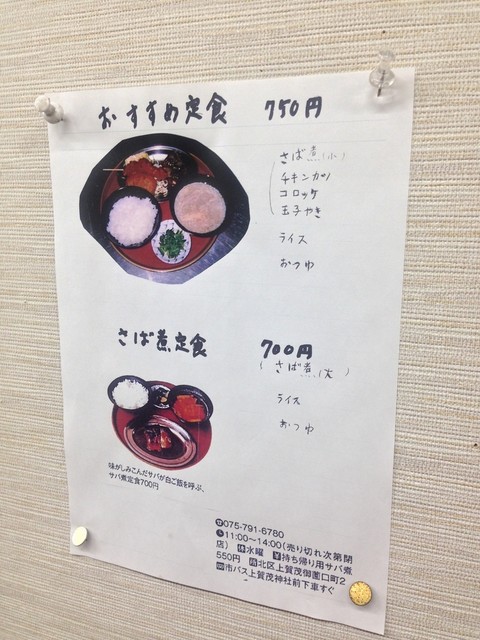 おすすめ定食 750円
さば煮(小)
チキンカツ
コロッケ
玉子やき
ライス
おつゆ
さば煮定食 700円
(さば煮(大)
ライス
おつゆ
味がしみこんだサバが白ご飯を呼ぶ、
サバ煮定食700円
☎075-791-6780
11:00~14:00(売り切れ次第閉
店) 休水曜 ¥持ち帰り用サバ煮
550円 住北区上賀茂御薗口町2
市バス上賀茂神社前下車すぐ